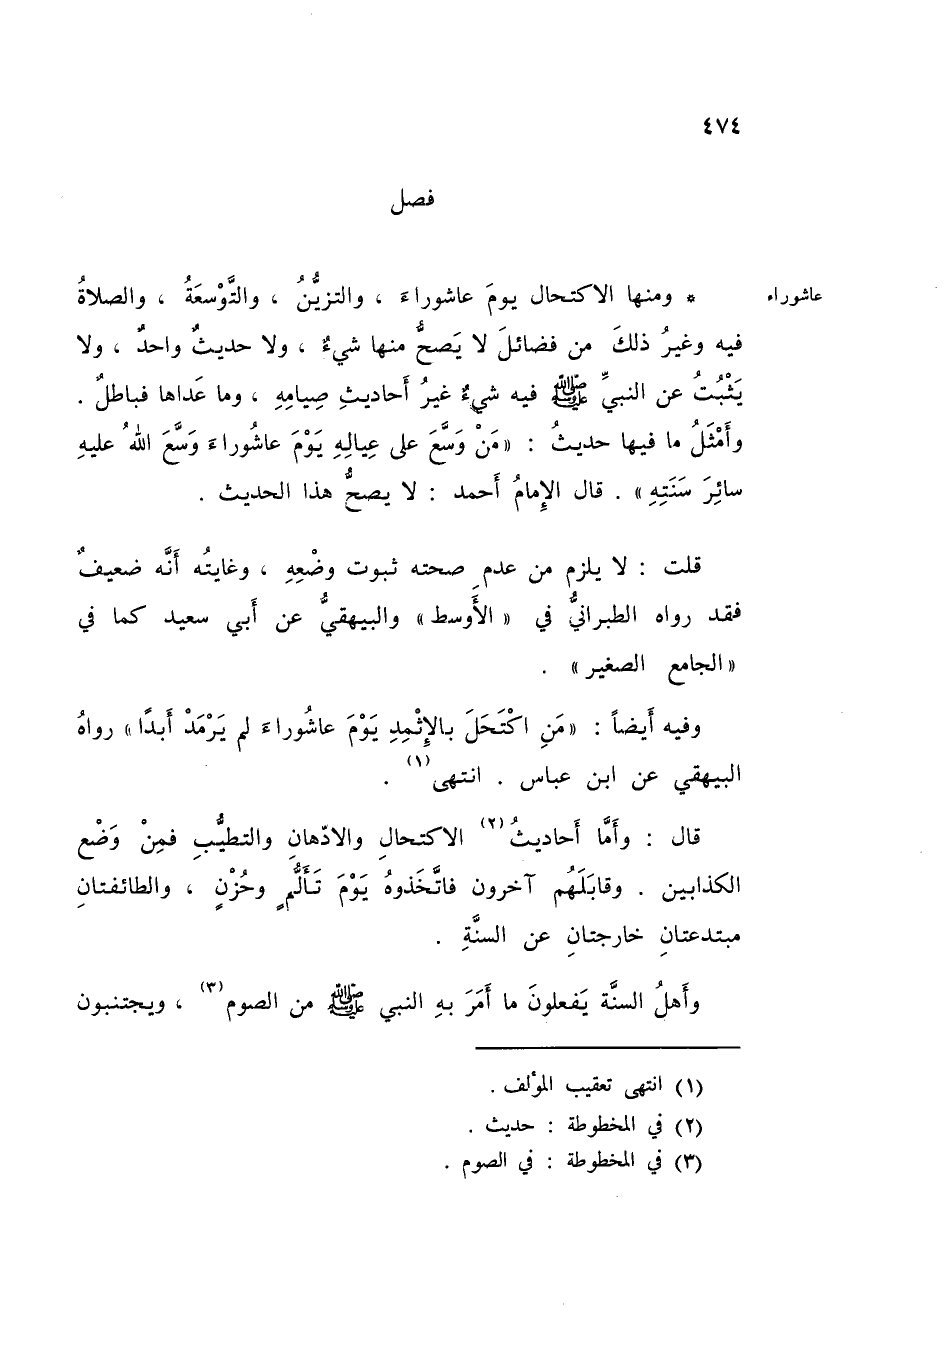 ٤٧٤
فصل
عاشوراء * ومنها الاكتحال يومَ عاشوراءَ ، والتزيُّنُ ، والتَّوْسعَةُ ، والصلاةُ
فيه وغيرُ ذلكَ من فضائلَ لا يَصحُّ منها شيءٌ ، ولا حديثٌ واحدٌ ، ولا
يَثْبُتُ عن النبيِّ ﷺ فيه شيءٌ غيرُ أَحاديثِ صِيامِهِ ، وما عَداها فباطلٌ .
وأَمْثَلُ ما فيها حديثُ : « مَنْ وَسَّعَ على عِيالِهِ يَوْمَ عاشُوراءَ وَسَّعَ اللهُ عليهِ
سائِرَ سَنَتِهِ » . قال الإِمامُ أَحمد : لا يصحُّ هذا الحديث .
قلت : لا يلزم من عدمِ صحته ثبوت وضْعِهِ ، وغايتُه أَنَّه ضعيفٌ
فقد رواه الطبرانيُّ في « الأَوسط » والبيهقيُّ عن أَبي سعيد كما في
« الجامع الصغير » .
وفيه أَيضاً : « مَنِ اكْتَحَلَ بالإِثْمِدِ يَوْمَ عاشُوراءَ لم يَرْمَدْ أَبدًا » رواهُ
البيهقي عن ابن عباس . انتهى(١) .
قال : وأَمَّا أَحاديثُ(٢) الاكتحالِ والادّهانِ والتطيُّبِ فمِنْ وَضْع
الكذابين . وقابَلَهُم آخرون فاتَّخَذوهُ يَوْمَ تَأَلُّمٍ وحُزْنٍ ، والطائفتانِ
مبتدعتانِ خارجتانِ عن السنَّةِ .
وأَهلُ السنَّة يَفعلونَ ما أَمَرَ بهِ النبي ﷺ من الصوم(٣) ، ويجتنبون
(١) انتهى تعقيب المؤلف .
(٢) في المخطوطة : حديث .
(٣) في المخطوطة : في الصوم .